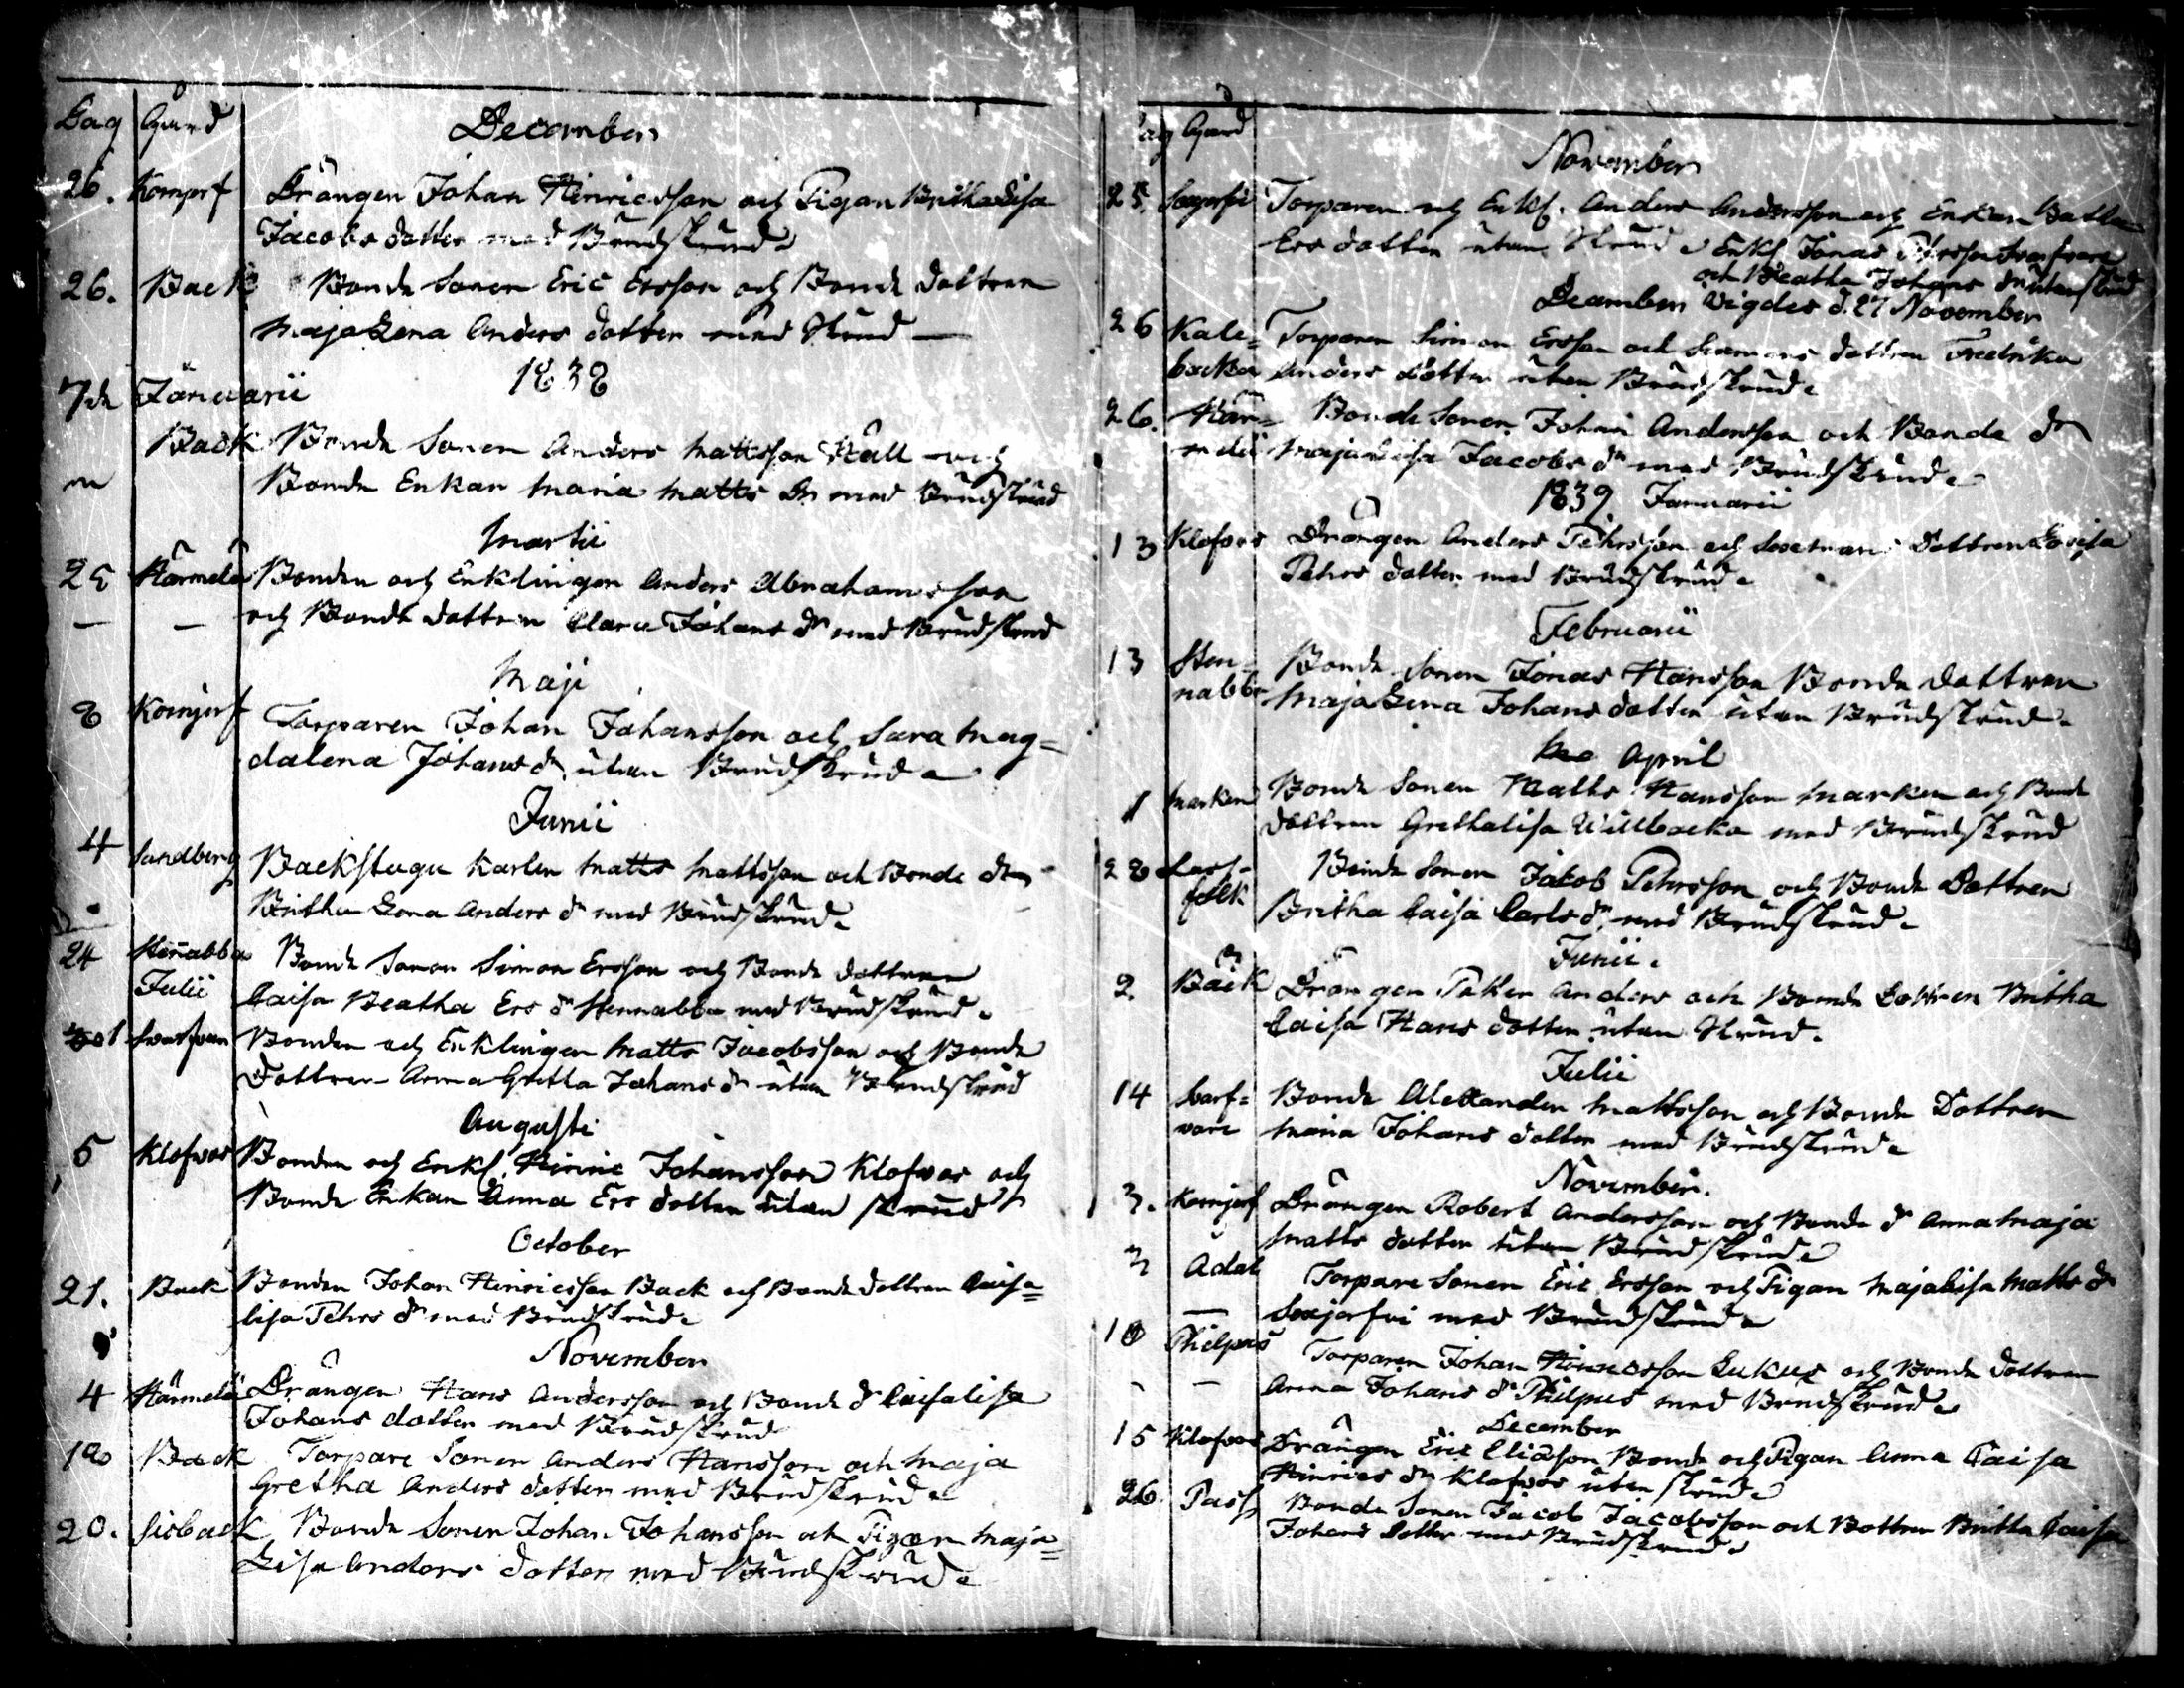 Dag Gård
December
26. Komperf Drängen Johan Hinricsson och Pigan Britha Lisa
Jacobs dotter med Brudskrud
26. Back Bonde Sonen Eric Ersson och Bonde dottren
Maja Lena Anders dotter med Skrud
1838
7de Januarii
Back Bonde Sonen Anders Mattsson Kall och
Bonde Enkan Maria Matts dr med Brudskrud
Martii
25 Härmälä Bonden och Enklingen Anders Abrahamsson
och Bonde dottren Clara Johans dr med Brudskrud
Maji
8 Kornjerf Torparen Johan Johansson och Sara Mag=
dalena Johans dr utan Brudskrud
Junii
4 Sandberg Backstugu Karlen Matts Mattsson och Bonde dr
Britha Lena Anders dr med Brudskrud
24 Stennabba Bonde Sonen Simon Ersson och Bonde dottren
Julii Caisa Beatha Ers dr Stennabba med Brudskrud
1 Svartvan Bonden och Enklingen Matts Jacobsson och Bonde
Dottren Anna Gretta Johans dr utan Brudskrud
Augusti
5 Klofvos Bonden och Enkl. Hinric Johansson Klofvos och
Bonde Enkan Anna Ers dotter utan skrud
October
21. Back Bonden Johan Hinricsson Back och Bonde dottren Caisa=
lisa Pehrs dr med Brudskrud
November
4 Härmälä Drängen Hans Andersson och Bonde dr Caisalisa
Johans dotter med Brudskrud
Back Torpare Sonen Anders Hansson och Maja
Gretha Anders dotter med Brudskrud
20. Sisback Bonde Sonen Johan Johansson och Pigan Maja=
Lisa Anders dotter med Brudskrud
Dag Gård
November
25. Torparen och Enkl. Anders Andersson och Enkan
Ers dotter utan Skrud Enkl Jonas Pehrsson Svartvare
och Beatha Johans dr utan skrud
December Vigdes d. 27 November
26 Kale= Torparen Simon Ersson och dottren Fredrika
backa Anders dotter utan Brudskrud
26. Här= Bonde Sonen Johan Andersson och Bonde dr
mälä Maja Lisa Jacobs dr med Brudskrud
1839 Januarii
13 Klofvos Drängen Anders Pehrsson och dottren Lovisa
Pehrs dotter med Brudskrud
Februarii
13 Sten= Bonde Sonen Jonas Hansson Bonde dottren
nabba Maja Lena Johans dotter utan Brudskrud
April
1 Marken Bonde Sonen Matts Hansson Marken och Bonde
dottren Grethalisa Willbacka med Brudskrud
28 Lass=
folk Bonde Sonen Jacob Pehrsson och Bonde Dottren
Britha Caisa Carls dr med Brudskrud
Junii
2. Back Drängen Petter Anders och Bonde Dottren Britha
Caisa Hans dotter utan Skrud.
Julii
14 Svart= Bonde Alexander Mattsson och Bonde Dottren
vare Maria Johans dotter med Brudskrud
November.
3. Kornjerf Drängen Robert Andersson och Bonde dr Anna Maja
Matts dotter utan Brudskrud
3 Adal Torpare Sonen Eric Ersson och Pigan Majalisa Matts dr
Soxjerfvi med Brudskrud
10 Philpus Torparen Johan Hinricsson Lukus och Bonde dottren
Anna Johans dr Philpus med Brudskrud
December
15 Klofvos Drängen Eric Eliasson Bonde och Pigan Anna Caisa
Hinrics dr Klofvos utan skrud
26 Pass Bonde Sonen Jacob Jacobsson och Dottren Britta Caisa
Johans Dotter med Brudskrud